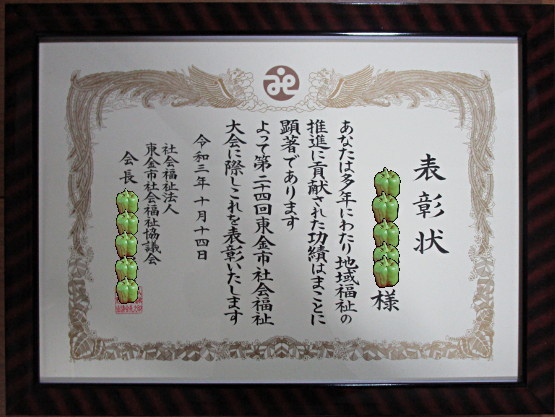 表彰状
様
あなたは多年にわたり地域福祉の
推進に貢献された功績はまことに
顕著であります
よって第二十四回東金市社会福祉
大会に際しこれを表彰いたします
令和三年十月十四日
社会福祉法人
東金市社会福祉協議会
会長